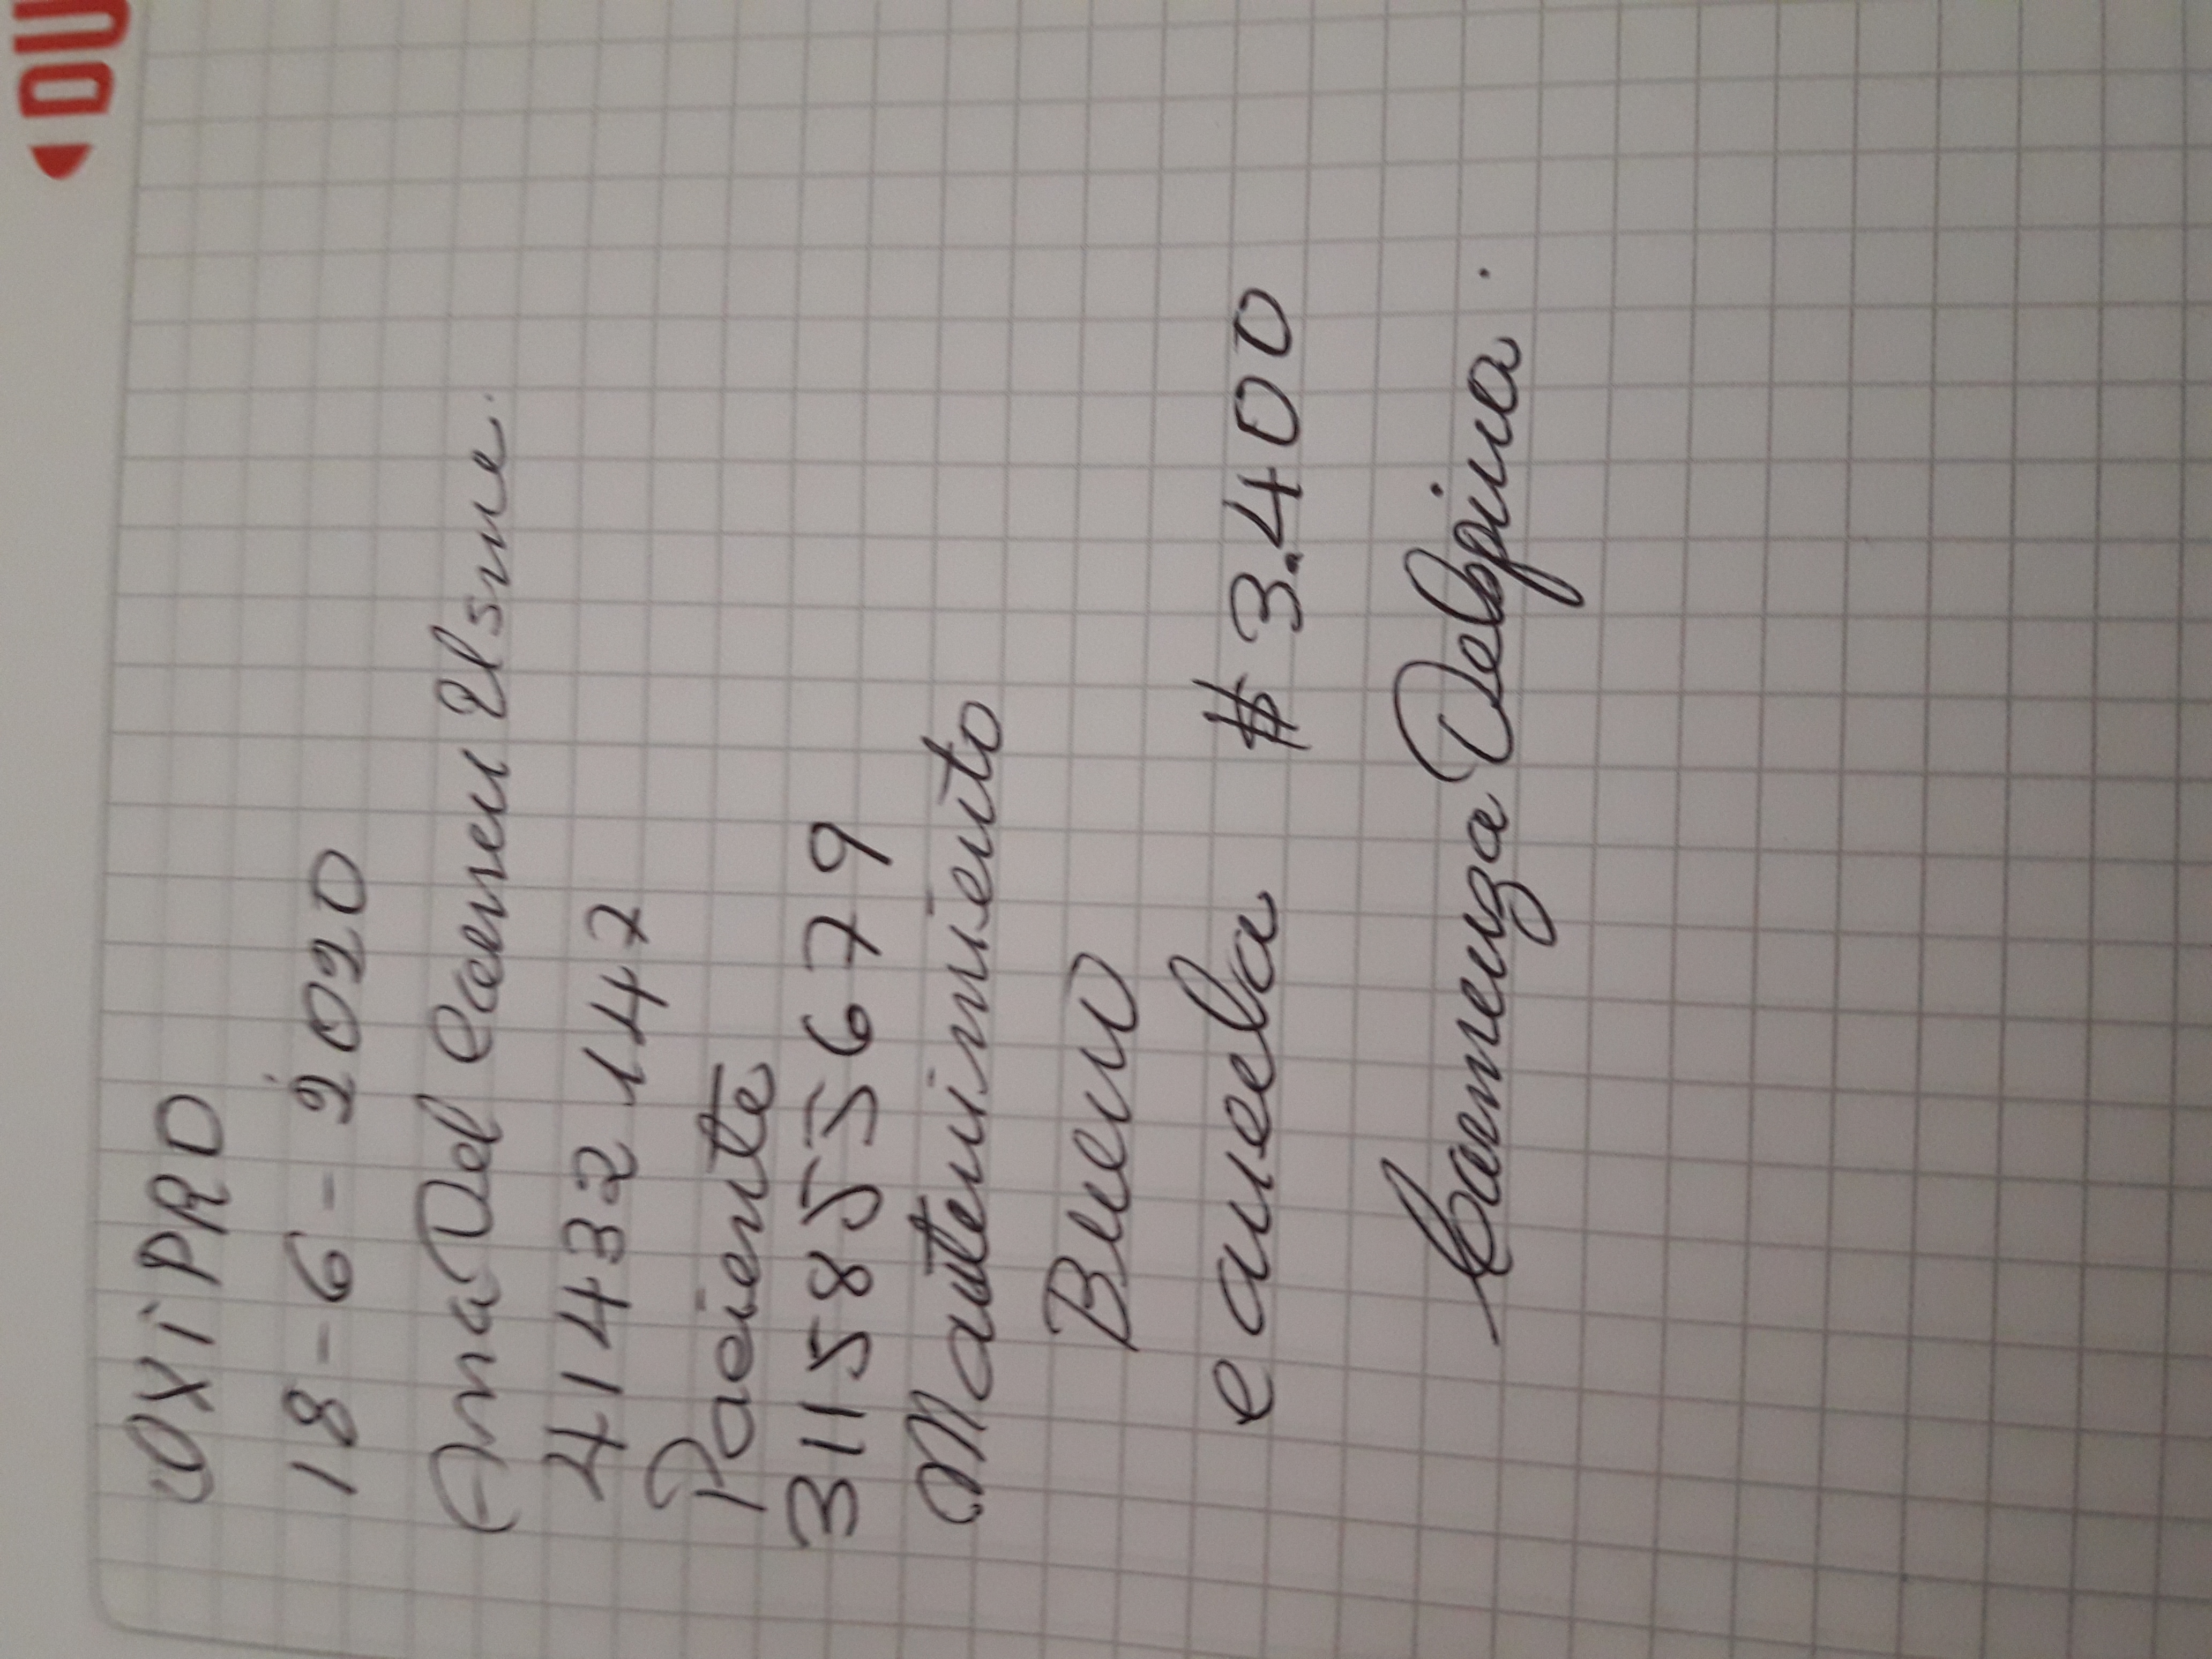 DU
OXiPRO
18-6-2020
Ana Del Carmen Usme.
41432147
Paciente
3115855679
Mantenimiento
Bueno
Cancela # 3.400
Carmenza Delspina.